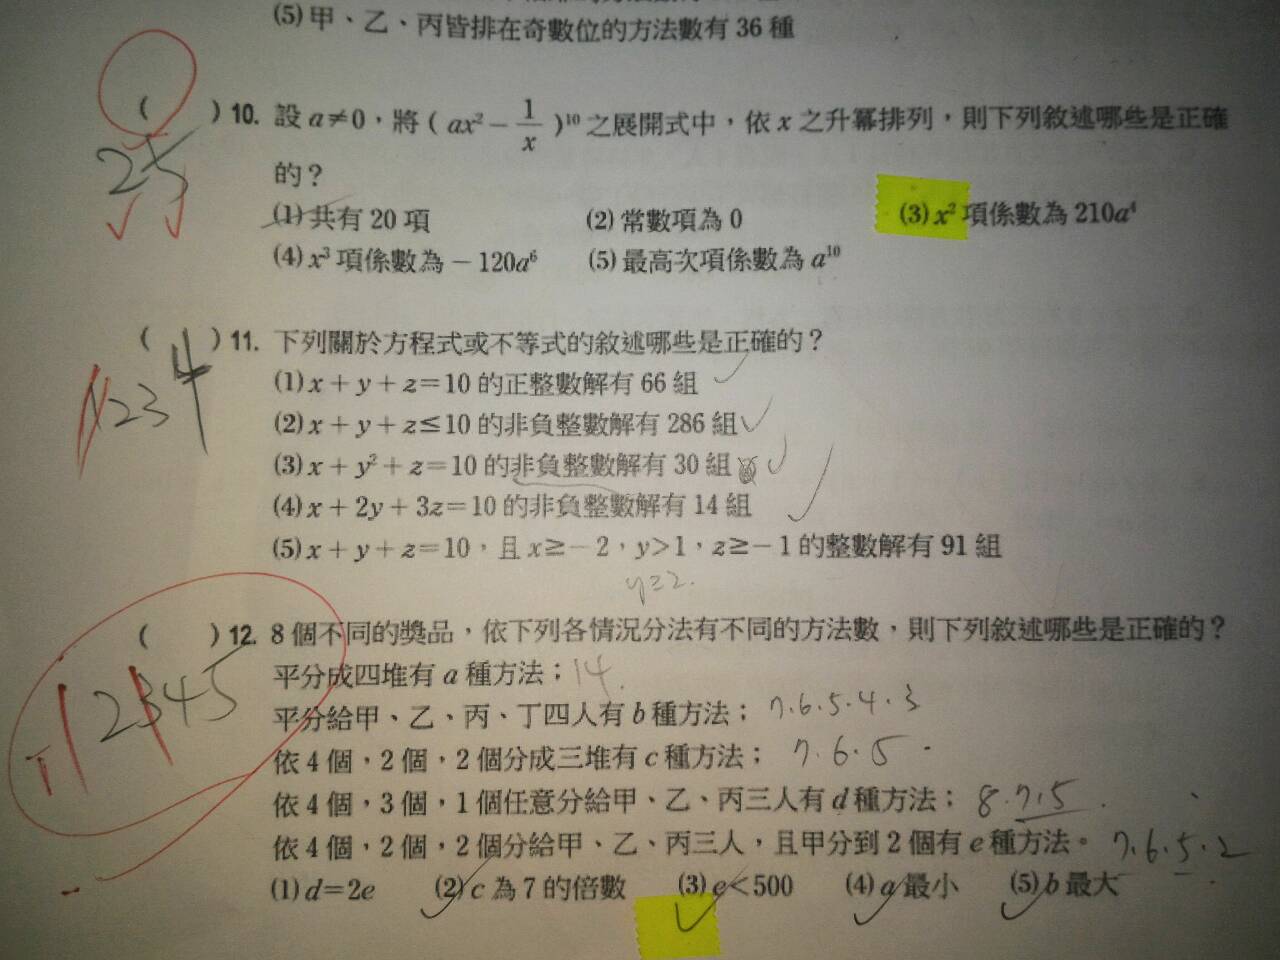 (5) 甲、乙、丙皆排在奇數位的方法數有 36 種
( ) 10. 設 a≠0，將 ( ax² − 1/x )¹⁰ 之展開式中，依 x 之升冪排列，則下列敘述哪些是正確
的？
25
(1) 共有 20 項 (2) 常數項為 0 (3) x² 項係數為 210a⁴
(4) x³ 項係數為 − 120a⁶ (5) 最高次項係數為 a¹⁰
( ) 11. 下列關於方程式或不等式的敘述哪些是正確的？
1234
(1) x + y + z = 10 的正整數解有 66 組
(2) x + y + z ≤ 10 的非負整數解有 286 組
(3) x + y² + z = 10 的非負整數解有 30 組
(4) x + 2y + 3z = 10 的非負整數解有 14 組
(5) x + y + z = 10，且 x ≥ − 2，y > 1，z ≥ − 1 的整數解有 91 組
y≥2.
( ) 12. 8 個不同的獎品，依下列各情況分法有不同的方法數，則下列敘述哪些是正確的？
12345
平分成四堆有 a 種方法； 14.
平分給甲、乙、丙、丁四人有 b 種方法； 7.6.5.4.3
依 4 個，2 個，2 個分成三堆有 c 種方法； 7.6.5
依 4 個，3 個，1 個任意分給甲、乙、丙三人有 d 種方法； 8.7.5
依 4 個，2 個，2 個分給甲、乙、丙三人，且甲分到 2 個有 e 種方法。 7.6.5.2
(1) d = 2e (2) c 為 7 的倍數 (3) e < 500 (4) a 最小 (5) b 最大